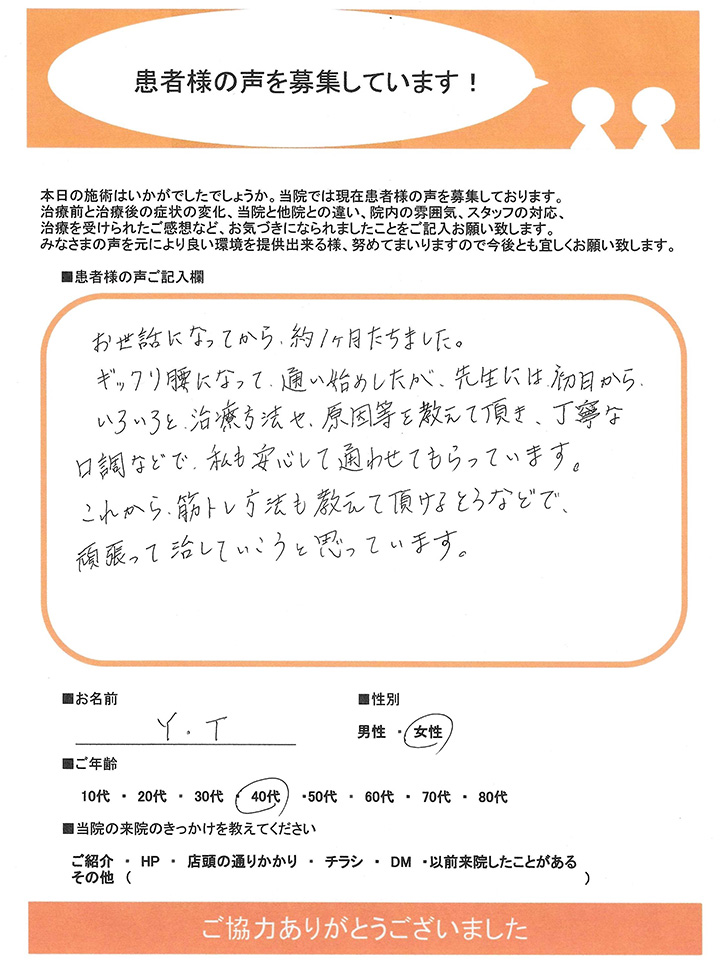 患者様の声を募集しています！
本日の施術はいかがでしたでしょうか。当院では現在患者様の声を募集しております。
治療前と治療後の症状の変化、当院と他院との違い、院内の雰囲気、スタッフの対応、
治療を受けられたご感想など、お気づきになられましたことをご記入お願い致します。
みなさまの声を元により良い環境を提供出来る様、努めてまいりますので今後とも宜しくお願い致します。
■患者様の声ご記入欄
お世話になってから、約1ヶ月たちました。
ギックリ腰になって、通い始めしたが、先生には、初日から、
いろいろと、治療方法や、原因等を教えて頂き、丁寧な
口調などで、私も安心して通わせてもらっています。
これから、筋トレ方法も教えて頂けるとろなどで、
頑張って治していこうと思っています。
■お名前 ■性別
Y.T 男性 ・ 女性
■ご年齢
10代 ・ 20代 ・ 30代 ・ 40代 ・50代 ・ 60代 ・ 70代 ・ 80代
■当院の来院のきっかけを教えてください
ご紹介 ・ HP ・ 店頭の通りかかり ・ チラシ ・ DM ・以前来院したことがある
その他 （ ）
ご協力ありがとうございました